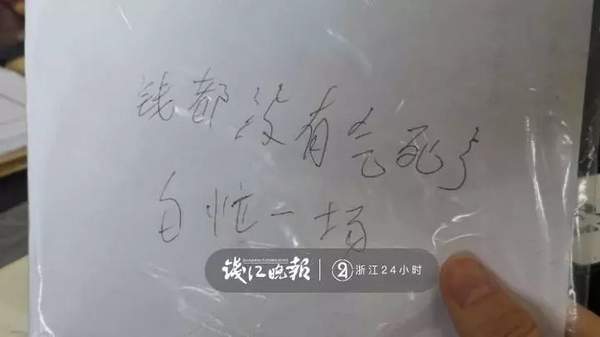 钱都没有气死了
白忙一场
钱江晚报 浙江24小时